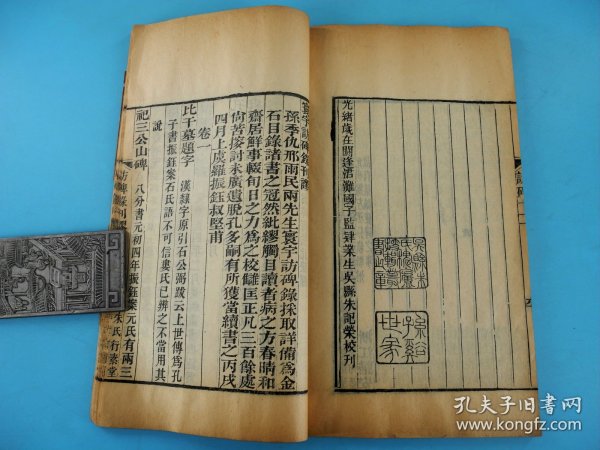 光緒歲在閼逢涒灘國子監肄業生吳縣朱記榮校刊
寰宇訪碑錄刊謬
孫季仇邢雨民兩先生寰宇訪碑錄採取詳備為金
石目錄諸書之冠然紕繆觸目讀者病之方春晴和
齋居鮮事輟旬日之力為之校讎匡正凡三百餘處
尙苦搜討未廣遺脫孔多嗣有所獲當續書之丙戌
四月上虞羅振鈺叔堅甫
卷一
比干墓題字 漢隸字原引石公弼跋云上世傳為孔
子書振鈺案石氏語不可信婁氏已辨之不當用其
說
祀三公山碑 八分書元初四年振鈺案元氏有兩三
訪碑錄刊謬
朱氏行素堂
孔夫子旧书网
www.kongfz.com